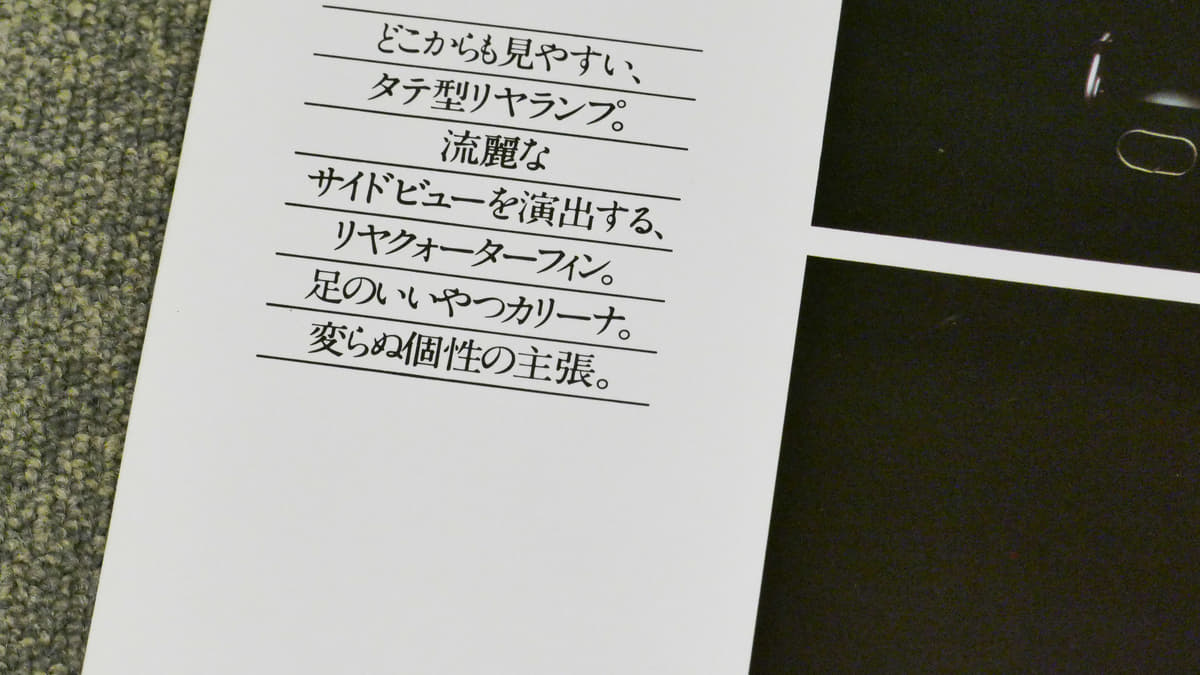 どこからも見やすい、
タテ型リヤランプ。
流麗な
サイドビューを演出する、
リヤクォーターフィン。
足のいいやつカリーナ。
変らぬ個性の主張。